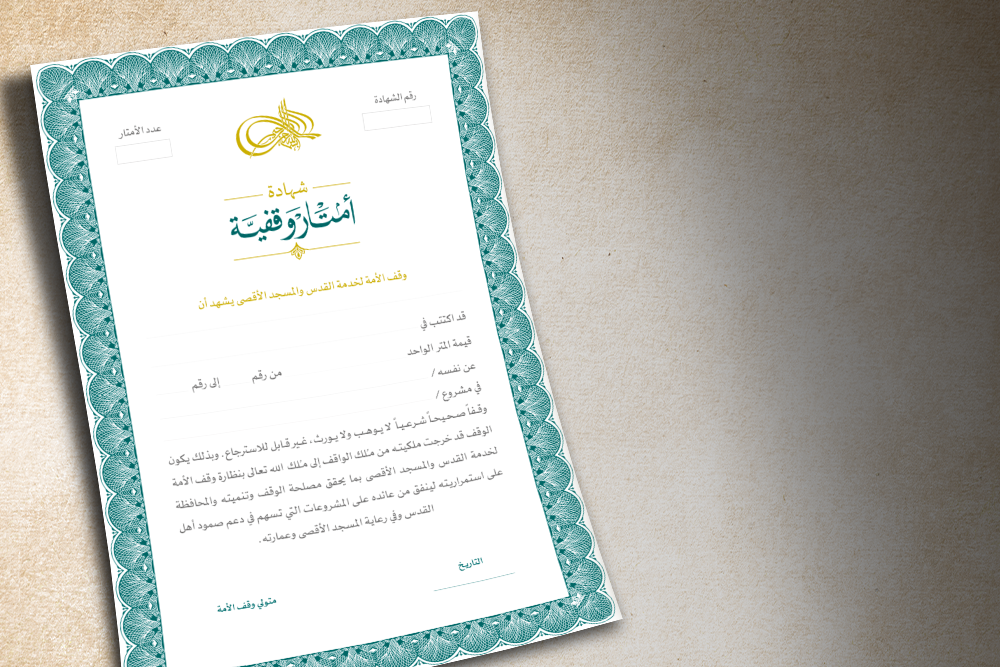 رقم الشهادة
عدد الأمتار
شهادة
أمتار وقفيّة
وقف الأمة لخدمة القدس والمسجد الأقصى يشهد أن
قد اكتتب في
قيمة المتر الواحد
عن نفسه / من رقم إلى رقم
في مشروع /
وقفاً صحيحاً شرعياً لا يوهب ولا يورث، غير قابل للاسترجاع، وبذلك يكون
الوقف قد خرجت ملكيته من مُلك الواقف إلى مُلك الله تعالى بنظارة وقف الأمة
لخدمة القدس والمسجد الأقصى بما يحقق مصلحة الوقف وتنميته والمحافظة
على استمراريته لينفق من عائده على المشروعات التي تسهم في دعم صمود أهل
القدس وفي رعاية المسجد الأقصى وعمارته.
التاريخ
متولي وقف الأمة